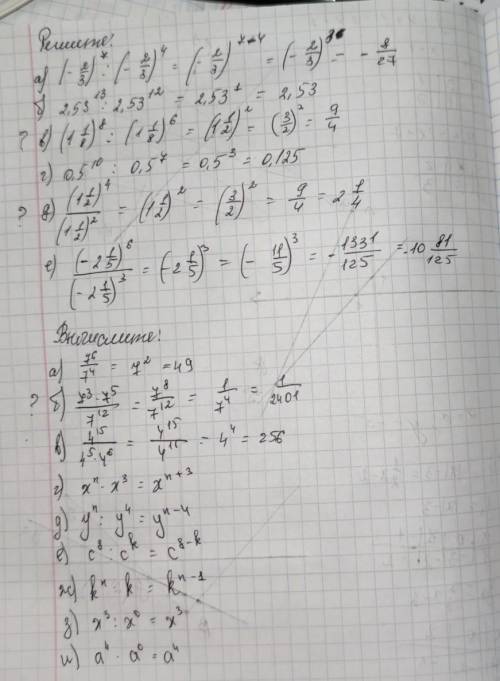 Решите:
а) (-2/3)^7 : (-2/3)^4 = (-2/3)^7-4 = (-2/3)^3 = -8/27
б) 2,53^13 : 2,53^12 = 2,53^1 = 2,53
? в) (1 1/8)^8 : (1 1/8)^6 = (1 1/2)^2 = (3/2)^2 = 9/4
г) 0,5^10 : 0,5^7 = 0,5^3 = 0,125
? д) (1 1/2)^4/(1 1/2)^2 = (1 1/2)^2 = (3/2)^2 = 9/4 = 2 1/4
е) (-2 1/5)^6/(-2 1/5)^3 = (-2 1/5)^3 = (-11/5)^3 = -1331/125 = -10 81/125
Вычислите:
а) 7^6/7^4 = 7^2 = 49
? б) 7^3·7^5/7^12 = 7^8/7^12 = 1/7^4 = 1/2401
в) 4^15/4^5·4^6 = 4^15/4^11 = 4^4 = 256
г) x^n · x^3 = x^n+3
д) y^n : y^4 = y^n-4
е) c^8 : c^k = c^8-k
ж) k^n : k = k^n-1
з) x^3 : x^0 = x^3
и) a^4 · a^0 = a^4